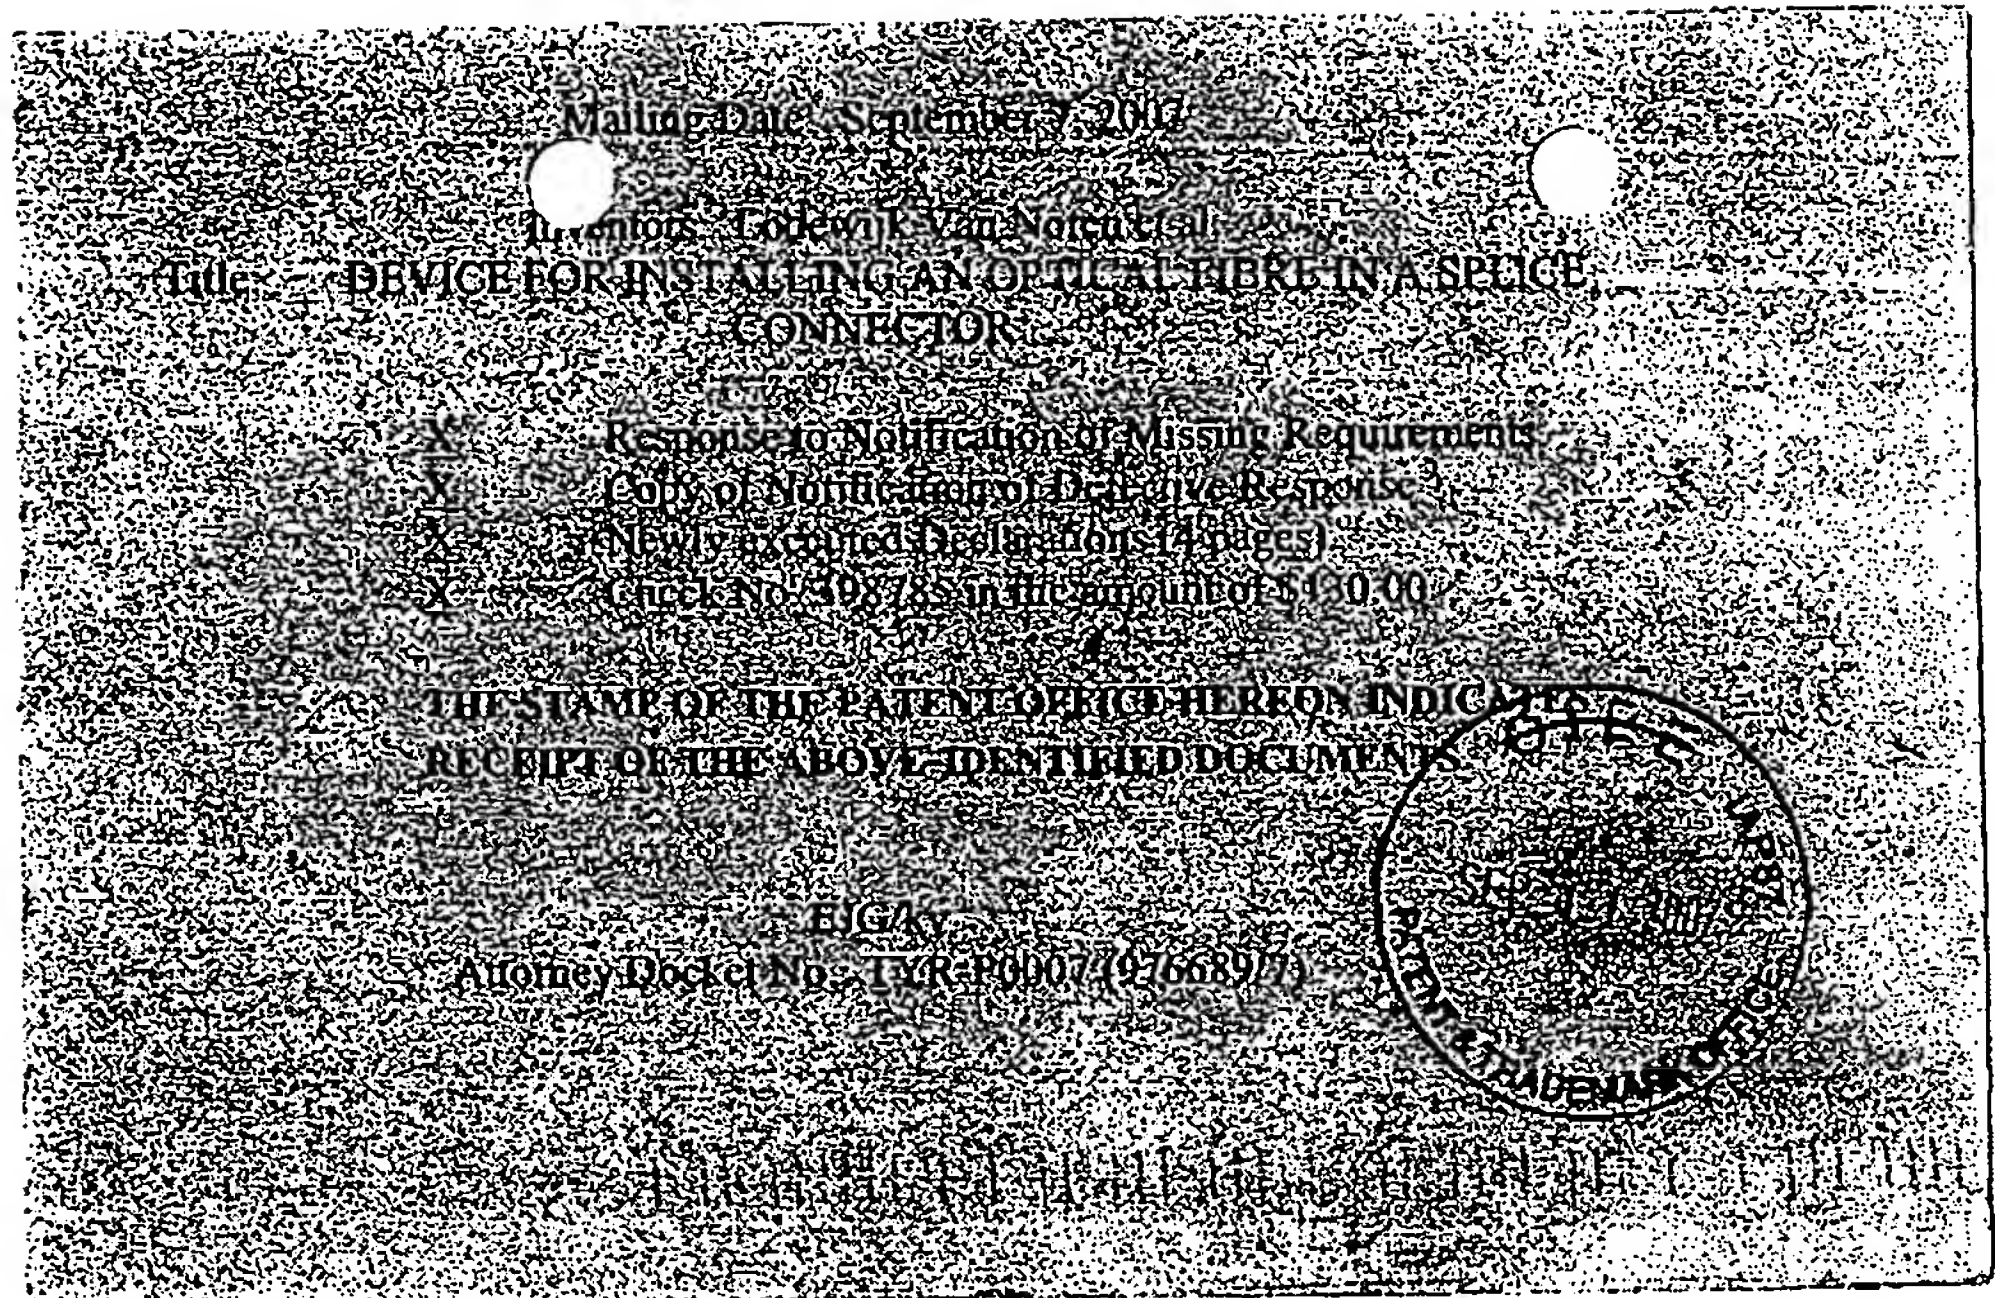 Mailing Date: September 7, 2007
Inventors: Lodewijk Van Noten et al
Title: DEVICE FOR INSTALLING AN OPTICAL FIBRE IN A SPLICE
CONNECTOR
X Response to Notification of Missing Requirements
X Copy of Notification of Defective Response
X Newly executed Declarations (4 pages)
X Check No. 398785 in the amount of
THE STAMP OF THE PATENT OFFICE HEREON INDICATES
RECEIPT OF THE ABOVE-IDENTIFIED DOCUMENTS
Attorney Docket No.: TYR-P0007 (976689/7)
PATENT & TRADEMARK OFFICE